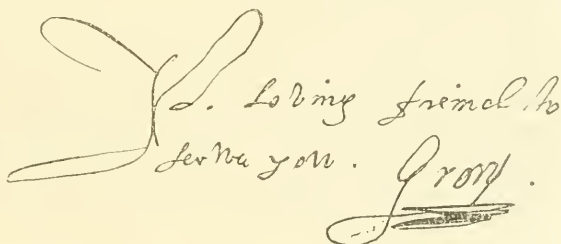 Yr. Loving friend to
serve you. Grory.